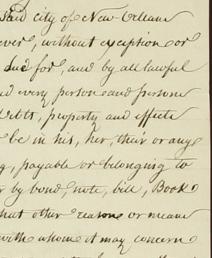 said city of New Orleans
ever, without exception or
due for, and by all lawful
nd every person and persons
debts, property and effects
be in his, her, their or any
g, payable or belonging to
r by bond, note, bill, Book
hat other reasons or means
with whome it may concern